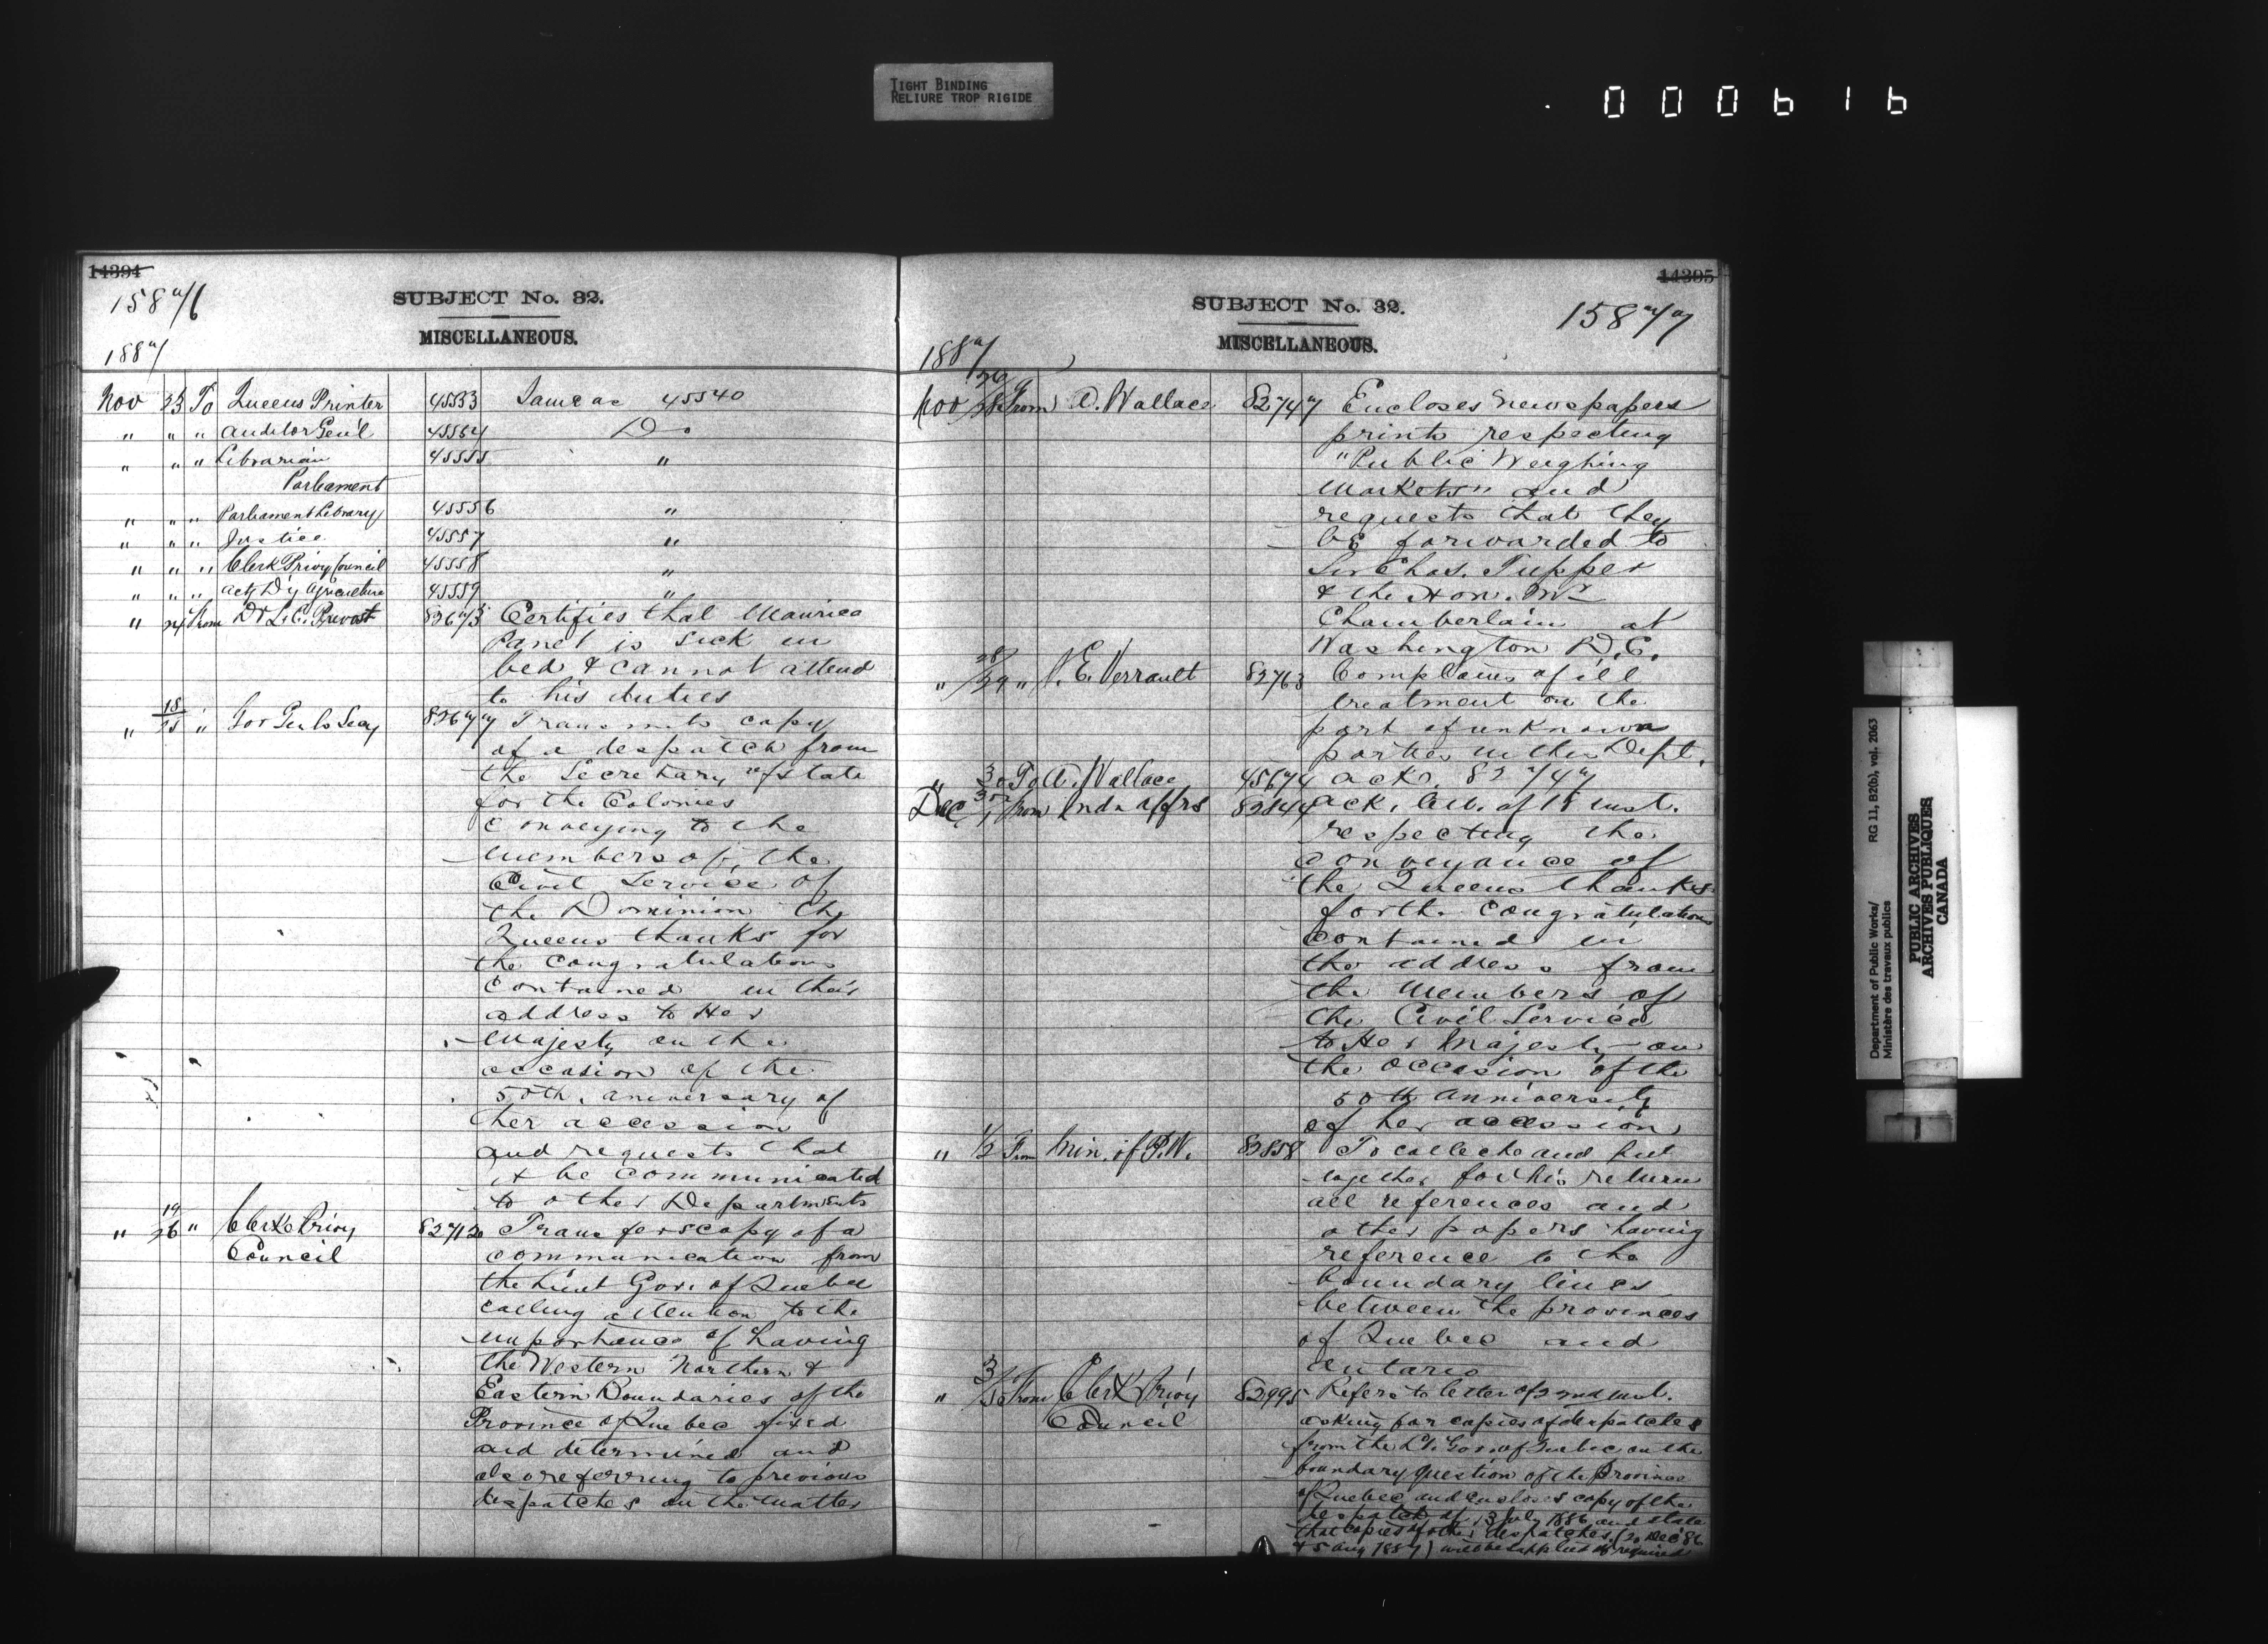 TIGHT BINDING
RELIURE TROP RIGIDE
000616
14394
1876
SUBJECT No. 32.
MISCELLANEOUS.
1887
Nov 23 To Queens Printer 45553 Same as 45540
" " " Auditor Genl 45554 Do
" " " Librarian 45555 "
Parliament
" " " Parliament Library 45556 "
" " " Justice 45557 "
" " " Clerk Privy Council 45558 "
" " " Actg Dy Agriculture 45559 "
" 24 From Dr L. C. Prevost 82673 Certifies that Maurice
Panet is sick in
bed & cannot attend
to his duties
" 18/25 " Gov Genls Secy 82677 Transmits copy
of a despatch from
the Secretary of State
for the Colonies
conveying to the
members of the
Civil Service of
the Dominion the
Queens thanks for
the congratulations
contained in their
address to Her
Majesty on the
occasion of the
50th. aniversary of
her accession
and requests that
it be communicated
to other Departments
" 19/26 " Clerk Privy 82712 Transfers copy of a
Council communication from
the Lieut Gov. of Quebec
calling attention to the
importance of having
the Western Northern &
Eastern Boundaries of the
Province of Quebec fixed
and determined and
also referring to previous
despatches on the matter
14395
15877
SUBJECT No. 32.
MISCELLANEOUS.
1887
Nov 26/28 From A. Wallace 82747 Encloses newspapers
prints respecting
"Public Weighing
Markets" and
requests that they
be forwarded to
Sir Chas. Tupper
& the Hon. Mr
Chamberlain at
Washington D.C.
" 28/29 " J. E. Verrault 82763 Complains of ill
treatment on the
part of unknown
parties in this Dept.
" 30 To A. Wallace 45674 ack. 82747
Dec 30/1 From Indn Affrs 82844 ack. let. of 18 inst.
respecting the
conveyance of
the Queens thanks
for the congratulations
contained in
the address from
the members of
the Civil Service
to Her Majesty on
the occasion of the
50th anniversity
of her accession
" 1/2 From Min. of P.W. 82858 To collect and put
together for his return
all references and
other papers having
reference to the
boundary lines
between the provinces
of Quebec and
Ontario
" 3/ From Clerk Privy 82995 Refers to letter of 2nd inst.
Council asking for copies of despatches
from the Lt. Gov. of Quebec on the
boundary question of the Province
of Quebec and encloses copy of the
despatch of 13 July 1886 and state
that copies of other despatches (20 Dec 86
& 5 Aug 1887) will be supplied if required
Department of Public Works/ RG 11, B2(b), vol. 2063
Ministère des travaux publics
PUBLIC ARCHIVES
ARCHIVES PUBLIQUES
CANADA